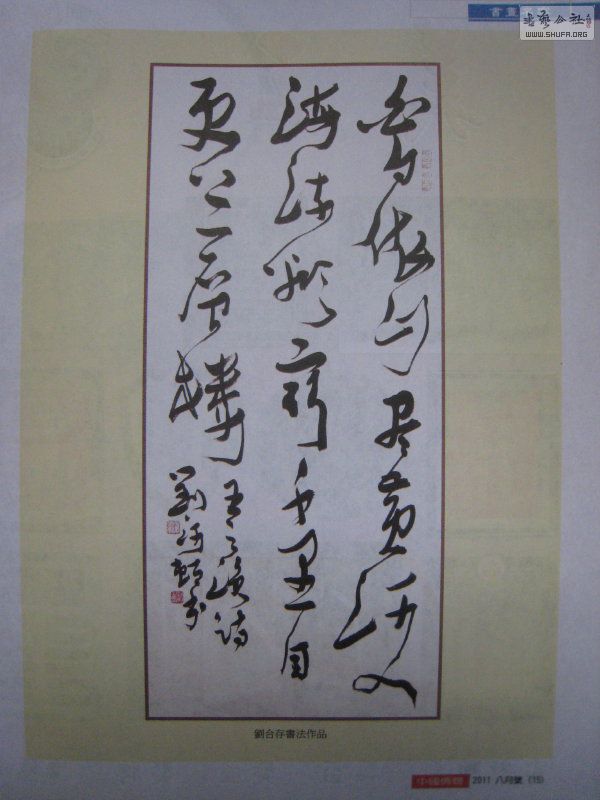 書畫
书艺公社
WWW.SHUFA.ORG
白日依山尽黄河入
海流欲窮千里目
更上一層樓
王之渙詩
劉
書
劉台存書法作品
2011 八月號 (15)